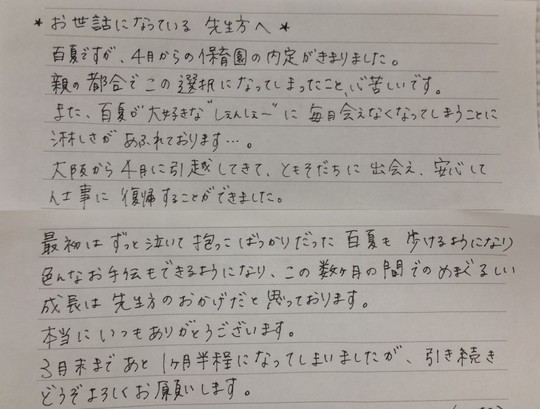 * お世話になっている 先生方へ *
百夏ですが、4月からの保育園の内定がきまりました。
親の都合でこの選択になってしまったこと、心苦しいです。
また、百夏が大好きな"しぇんしぇ〜"に毎日会えなくなってしまうことに
淋しさがあふれております…。
大阪から4月に引越してきて、ともそだちに出会え、安心して
仕事に復帰することができました。
最初はずっと泣いて抱っこばっかりだった百夏も歩けるようになり
色んなお手伝もできるようになり、この数ヶ月の間でのめまぐるしい
成長は先生方のおかげだと思っております。
本当にいつもありがとうございます。
3月末まであと1ヶ月半程になってしまいましたが、引き続き
どうぞよろしくお願いします。